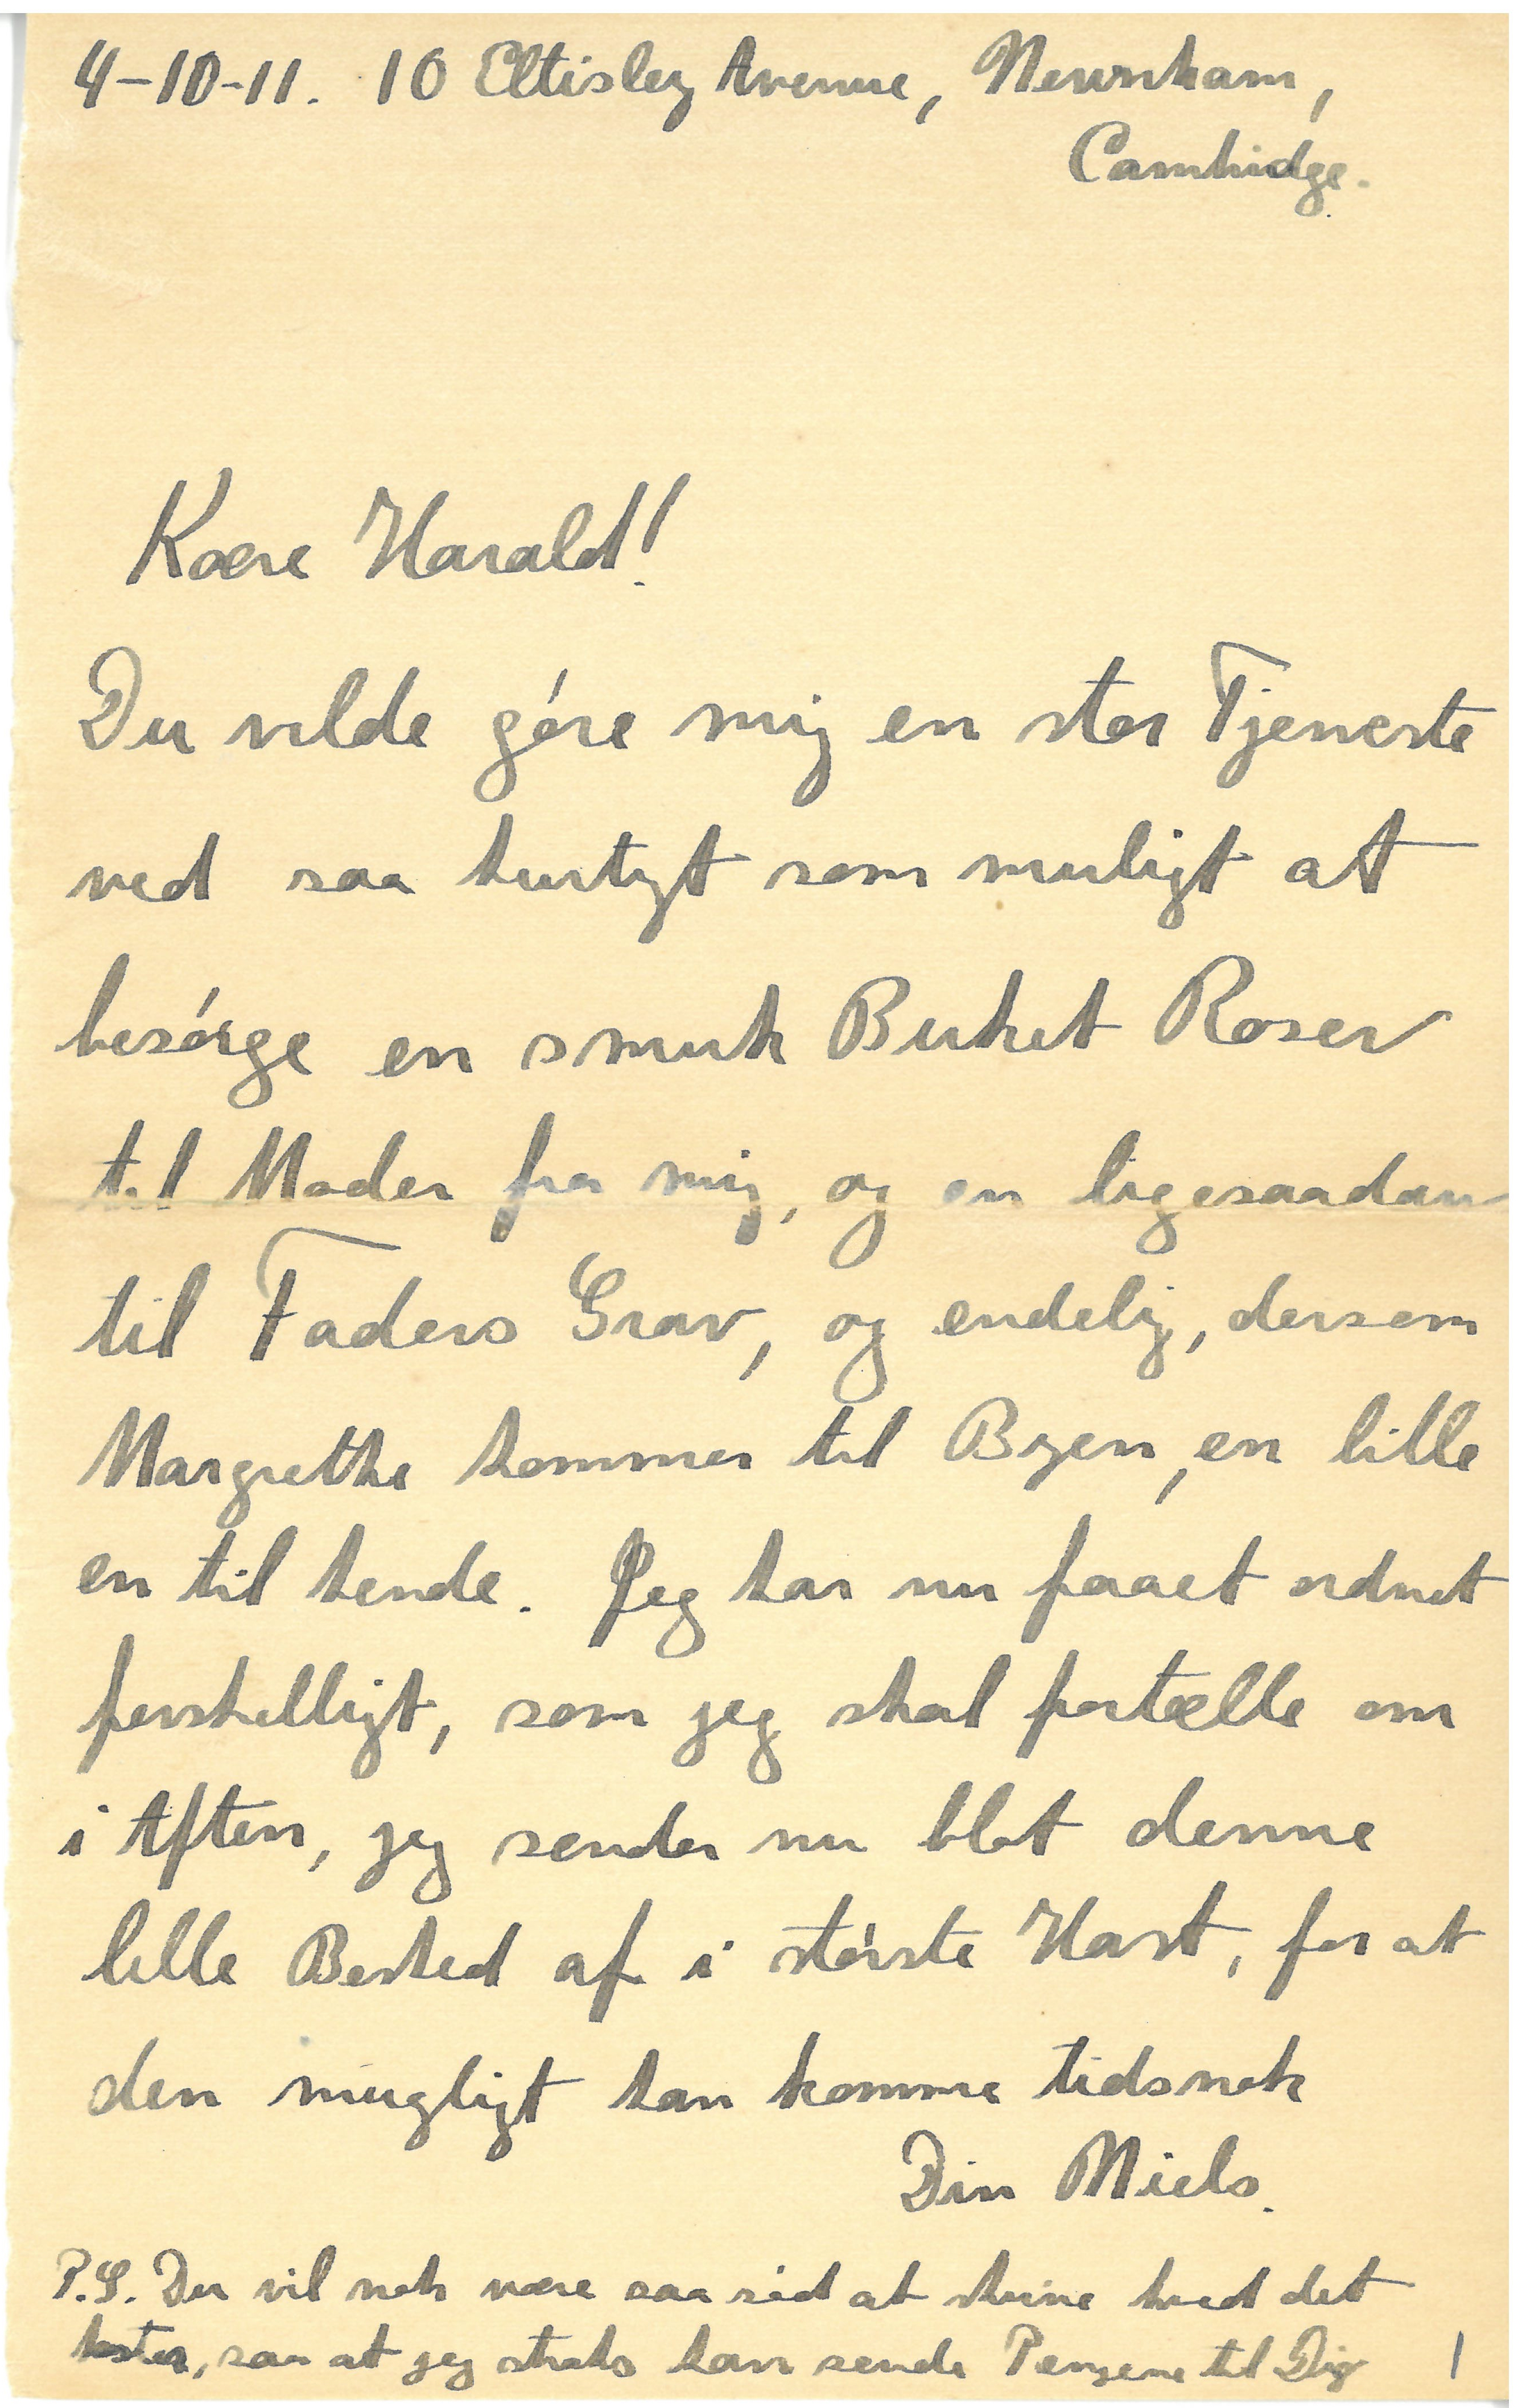 4-10-11. 10 Eltisley Avenue, Newnham,
Cambridge.
Kære Harald!
Du vilde göre mig en stor Tjeneste
ved saa hurtigt som muligt at
besörge en smuk Buket Roser
til Moder fra mig, og en ligesaadan
til Faders Grav, og endelig, dersom
Margrethe kommer til Byen, en lille
en til hende. Jeg har nu faaet ordnet
forskelligt, som jeg skal fortælle om
i Aften, jeg sender nu blot denne
lille Besked af i störste Hast, for at
den mugligt kan komme tidsnok
Din Niels.
P.S. Du vil nok være saa söd at skrive hvad det
koster, saa at jeg straks kan sende Pengene til Dig
1